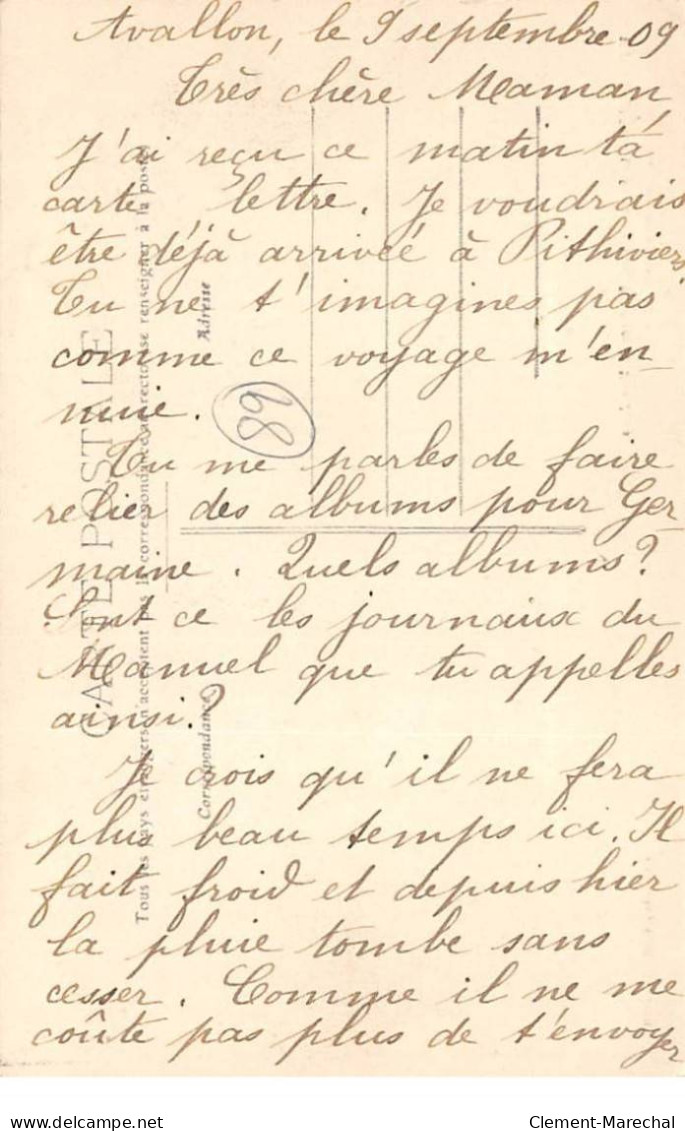 Avallon, le 9 septembre 09
Très chère Maman,
J'ai reçu ce matin ta
carte lettre. Je voudrais
être déjà arrivée à Pithiviers.
Tu ne t'imagines pas
comme ce voyage m'en-
nuie.
Tu me parles de faire
relier des albums pour Ger-
maine. Quels albums?
Sont ce les journaux du
Manuel que tu appelles
ainsi?
Je crois qu'il ne fera
plus beau temps ici. Il
fait froid et depuis hier
la pluie tombe sans
cesser. Comme il ne me
coûte pas plus de t'envoyer
68
CARTE POSTALE
Tous les pays étrangers n'acceptent pas la correspondance au recto (se renseigner à la poste)
Correspondance
Adresse
www.delcampe.net
Clement-Marechal